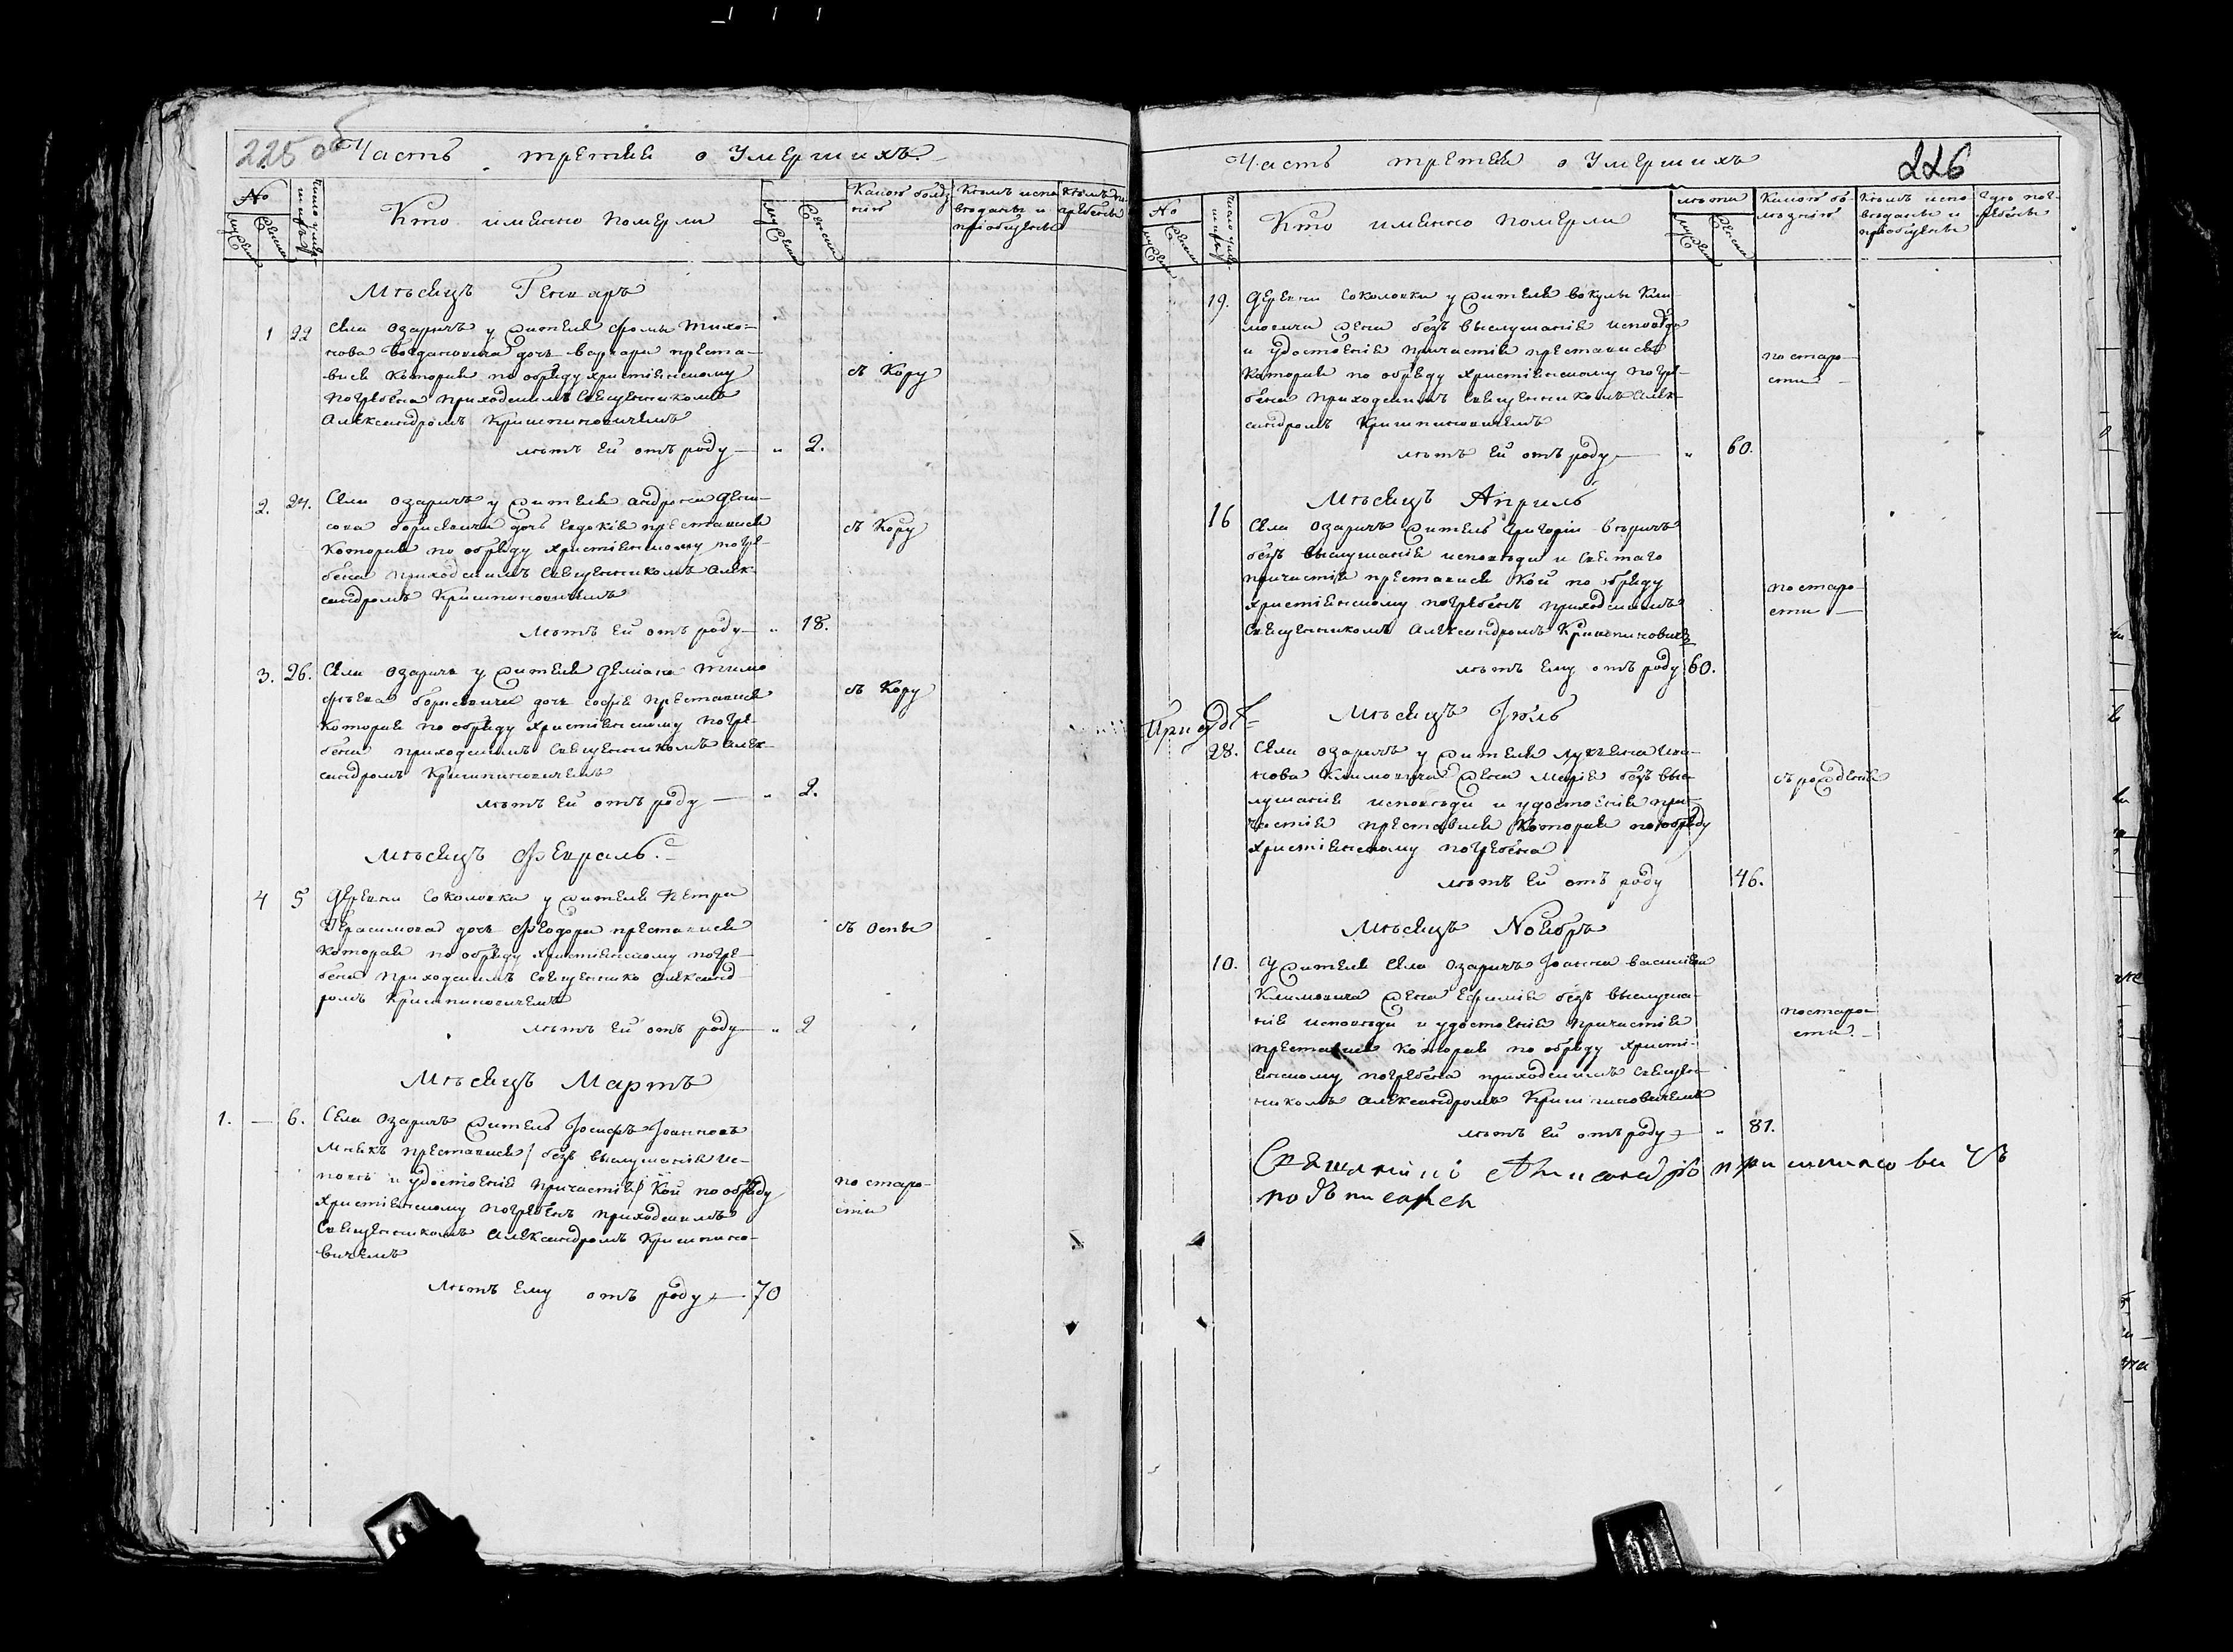 225 об
Часть третяя о Умершихъ.
№
мужеска
женска
Число умерших
Кто именно померли
мужеска
женска
Какою болѣзнію
Кѣмъ исповѣданы и пріобщены
Кѣмъ погребены
Мѣсяцъ Генваръ
1 22 Села Озаричъ жителя Фомы Тихо-
нова Богдановича дочь Варвара преста-
вися которая по обряду христіянскому
погребена приходскимъ Священникомъ
Александромъ Кришпиновичемъ
съ Кору
лѣтъ Ей отъ роду — „ 2.
2. 24. Села Озаричъ жителя Андрона Дени-
сова Борисевича дочь Евдокія преставися
которая по обряду христіянскому погре-
бена приходскимъ Священникомъ Алек-
сандромъ Кришпиновичемъ
съ Кору
лѣтъ Ей отъ роду — „ 18.
3. 26. Села Озаричъ жителя Деміана Тимо
фѣева Борисевича дочь Софія преставися
которая по обряду христіянскому погре-
бена приходскимъ Священникомъ Алек-
сандромъ Кришпиновичемъ
съ Кору
лѣтъ Ей отъ роду — „ 2.
Мѣсяцъ Февраль.
4 5 Деревни Соколовки жителя Петра
Герасимова дочь Феодора преставися
которая по обряду христіянскому погре-
бена приходскимъ Священнико Александ-
ромъ Кришпиновичемъ
съ Оспы
лѣтъ Ей отъ роду — „ 2
Мѣсяцъ Мартъ
1. — 6. Села Озаричъ житель Іосифъ Іоанновъ
преставися / безъ выслушанія ис-
повѣ и удостоенія причастія / кой по обряду
христіянскому погребенъ приходскимъ
Священникомъ Александромъ Кришпино-
вичемъ
по старо-
сти
лѣтъ Ему отъ роду — 70
Часть третяя о Умершихъ
226
№
мужеска
женска
Число умерших
Кто именно померли
лѣта
мужеска
женска
Какою бо-
лѣзнію
Кѣмъ испо
вѣданы и
пріобщены
Гдѣ пог-
ребены
19. Деревни Соколовки жителя Вокулы Кли-
мовича жена безъ выслушанія исповѣди
и удостоенія причастія преставися
которая по обряду христіянскому погре-
бена приходскимъ Священникомъ Алек-
сандромъ Кришпиновичемъ
по старо-
сти —
лѣтъ Ей отъ роду — „ 60.
Мѣсяцъ Априль
16 Села Озаричъ житель Григорій
безъ выслушанія исповѣди и Святаго
причастія преставися кой по обряду
христіянскому погребенъ приходскимъ
Священникомъ Александромъ Кришпинович
по старо-
сти —
лѣтъ Ему отъ роду 60.
Мѣсяцъ Іюль
28. Села Озаричъ жителя Лукъяна Ива-
нова Климовича жена Марія безъ выс-
лушанія исповѣди и удостоенія при-
частія преставися которая по обряду
христіянскому погребена
съ рожденія
лѣтъ Ей отъ роду 46.
Мѣсяцъ Ноябръ
10. Жителя Села Озаричъ Іоанна Василіева
Климовича жена Ефимія безъ выслуша-
нія исповѣди и удостоенія причастія
преставися которая по обряду христі-
янскому погребена приходскимъ Священ-
никомъ Александромъ Кришпиновичемъ
по старо-
сти. —
лѣтъ Ей отъ роду — „ 81.
Александръ Кришпиновичъ
подписалса